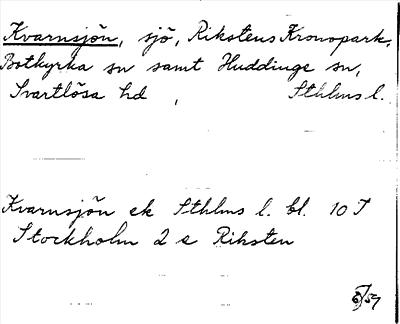 Kvarnsjön, sjö, Rikstens Kronopark,
Botkyrka sn samt Huddinge sn,
Svartlösa hd , Sthlms l.
Kvarnsjön ek Sthlms l. bl. 10 I
Stockholm 2 e Riksten